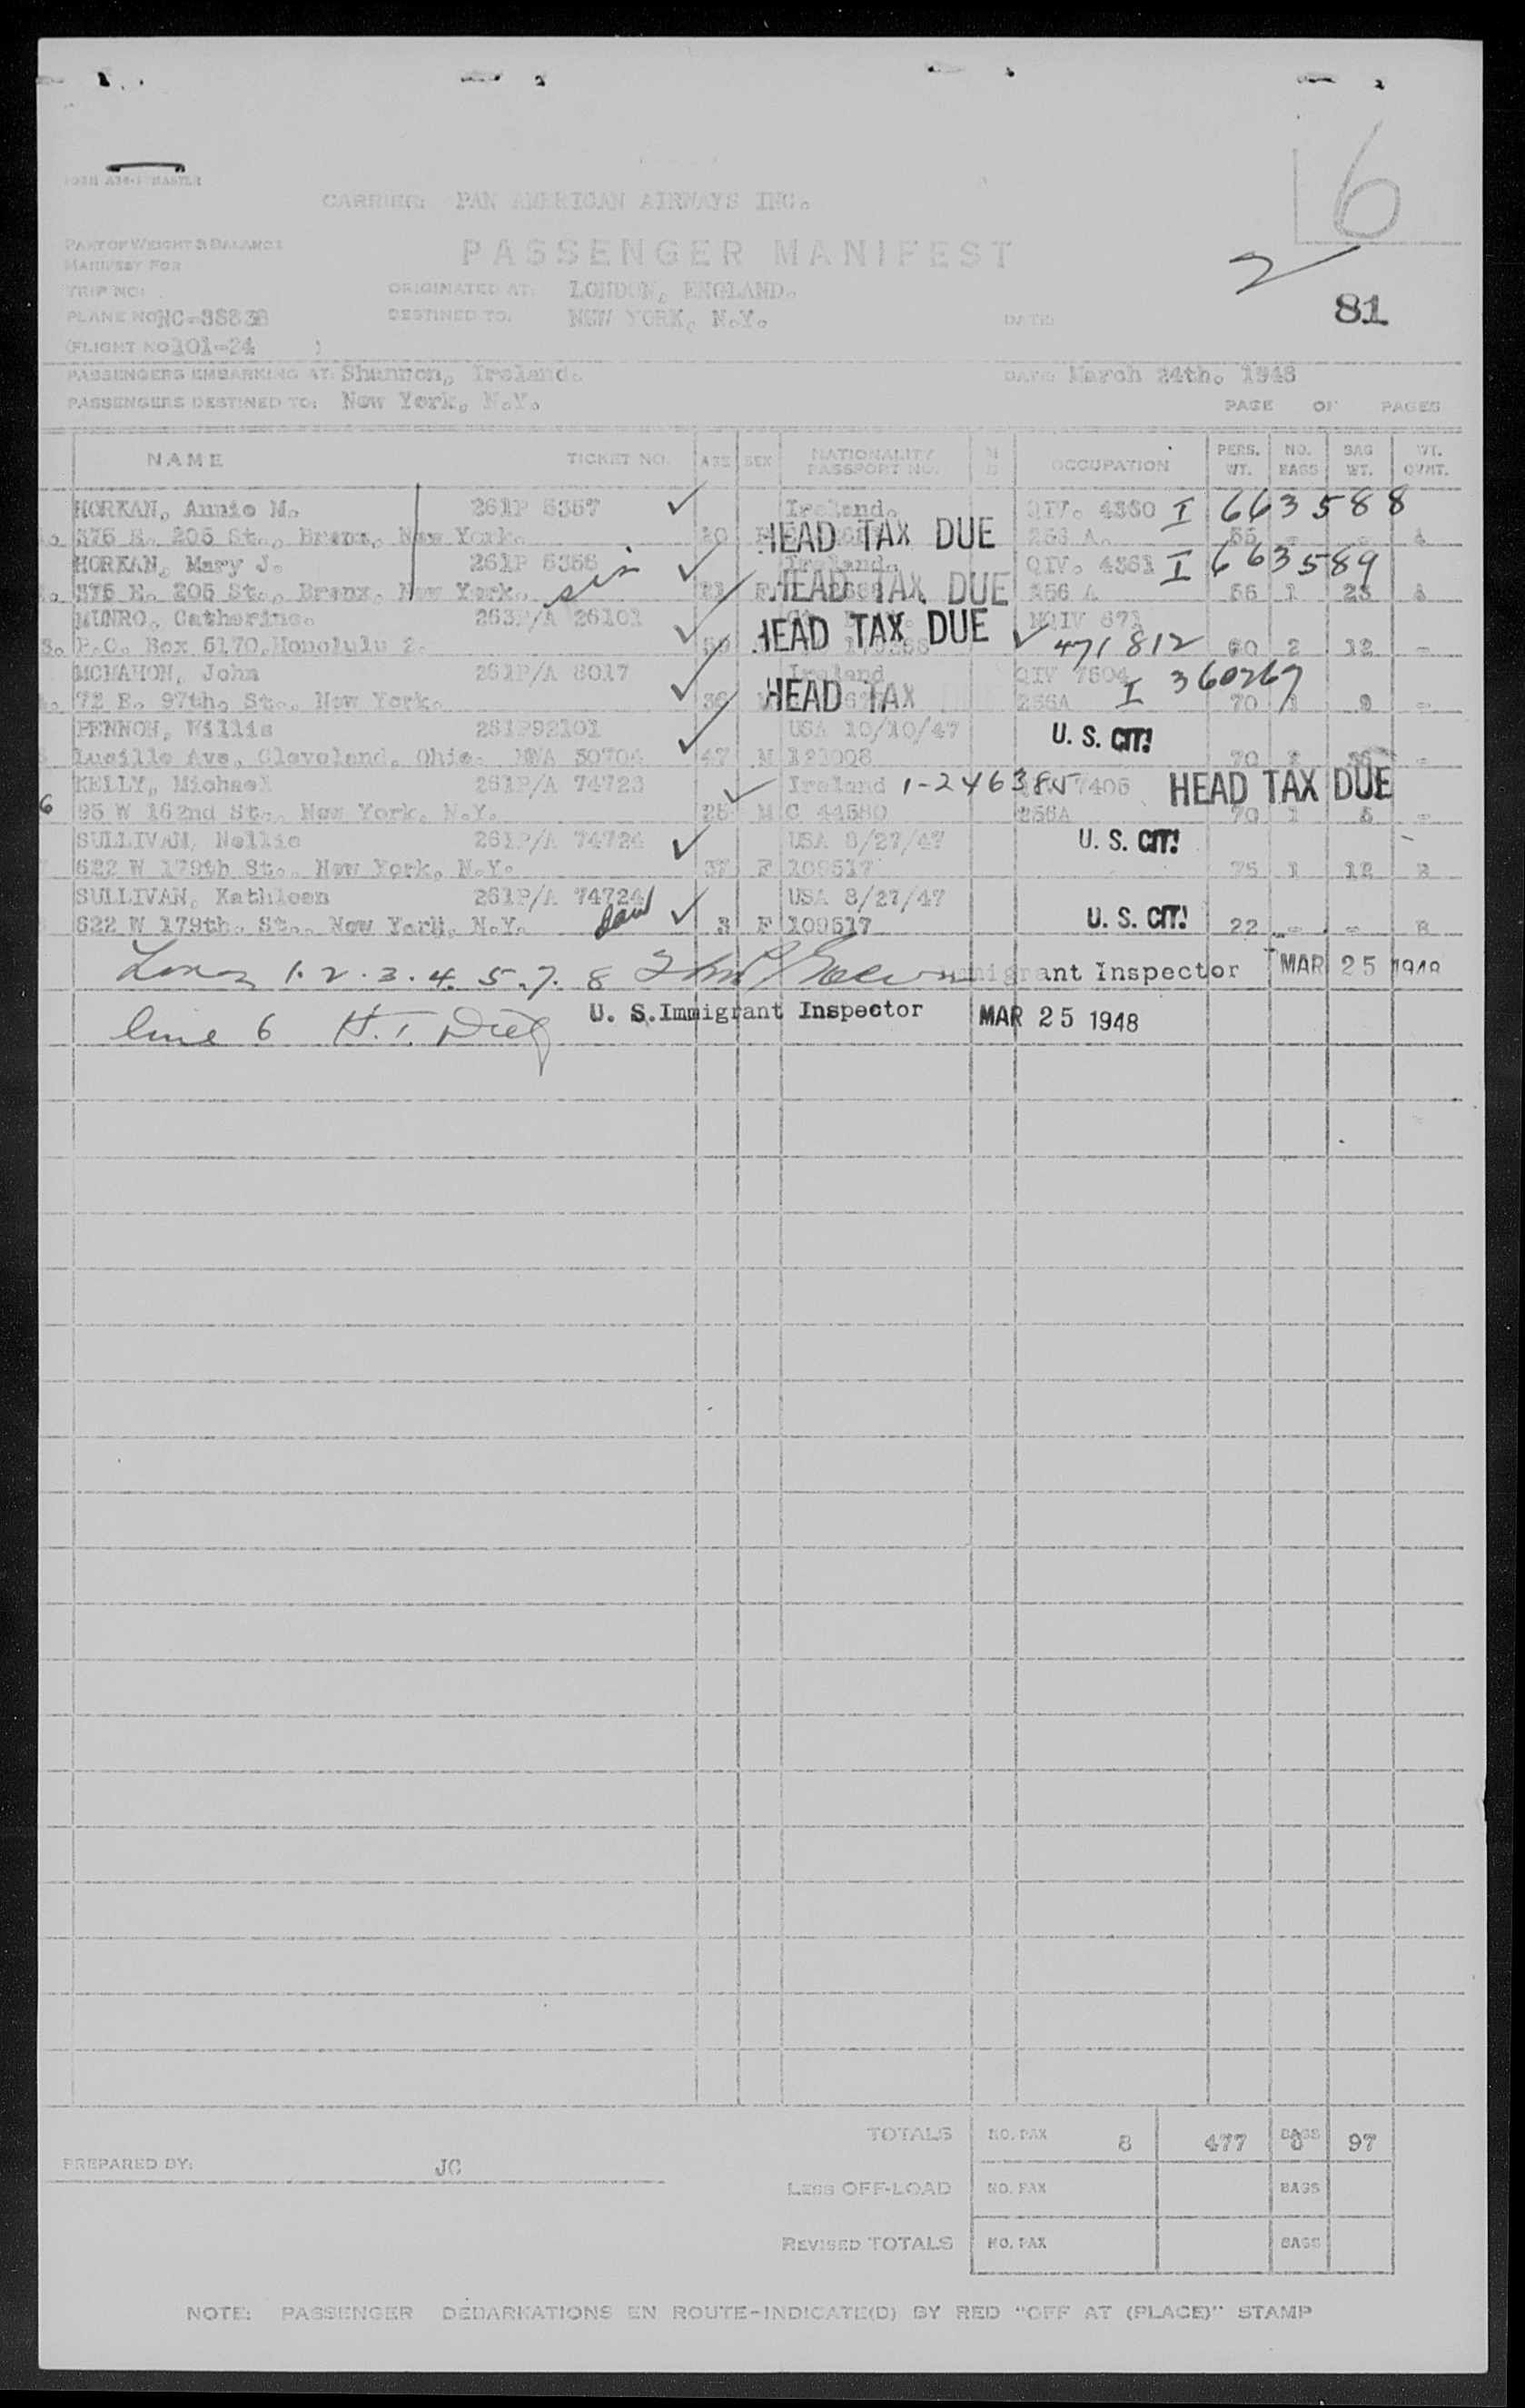 6
CARRIER: PAN AMERICAN AIRWAYS INC.
PART OF WEIGHT & BALANCE
MANIFEST FOR
PASSENGER MANIFEST
2
81
TRIP NO:
ORIGINATED AT: LONDON, ENGLAND.
PLANE NO
DESTINED TO: NEW YORK, N.Y.
DATE:
(FLIGHT NO 101-24 )
PASSENGERS EMBARKING AT: Shannon, Ireland.
DATE: March 24th. 1948
PASSENGERS DESTINED TO: New York, N.Y.
PAGE OF PAGES
NAME TICKET NO. AGE SEX NATIONALITY PASSPORT NO. OCCUPATION PERS. WT. NO. BAGS BAG WT. WT. OVHT.
HORKAN, Annie M. 261P 5357 Ireland. QIV. 4360 I 663588
375 E. 205 St., Bronx, New York. HEAD TAX DUE 256 A.
HORKAN, Mary J. 261P 5356 Ireland. QIV. 4361 I 663589
2. 375 E. 205 St., Bronx, New York. sis 21 F HEAD TAX DUE 256 A 56 1 23
MUNRO, Catherine. 263P/A 26101 NQIV 671
3. P.O. Box 5170, Honolulu 2. HEAD TAX DUE 471812 60 2 12 -
MCMAHON, John 261P/A 8017 Ireland QIV 7504
4. 72 E. 97th. St., New York. 36 HEAD TAX DUE 256A I 360267 70 1 9 -
PENNON, Willis 261P92101 USA 10/10/47 U. S. CIT!
Lucille Ave, Cleveland, Ohio. 47 M 70 -
KELLY, Michael 261P/A 74723 Ireland 1-246385 7405 HEAD TAX DUE
6 95 W 162nd St., New York, N.Y. 25 M C 44580 256A 70 1 5 -
SULLIVAN, Nellie 261P/A 74724 USA 8/27/47 U. S. CIT!
622 W 179th St., New York, N.Y. 37 F 109517 75 1 12 B
SULLIVAN, Kathleen 261P/A 74724 USA 8/27/47 U. S. CIT!
622 W 179th. St., New York, N.Y. dau 3 F 109517 22 - - B
Lines 1.2.3.4.5.7.8 Immigrant Inspector MAR 25 1948
line 6 U. S. Immigrant Inspector MAR 25 1948
TOTALS NO. PAX 8 477 BAGS 97
PREPARED BY: JC
LESS OFF-LOAD NO. PAX BAGS
REVISED TOTALS NO. PAX BAGS
NOTE: PASSENGER DEBARKATIONS EN ROUTE-INDICATE(D) BY RED "OFF AT (PLACE)" STAMP